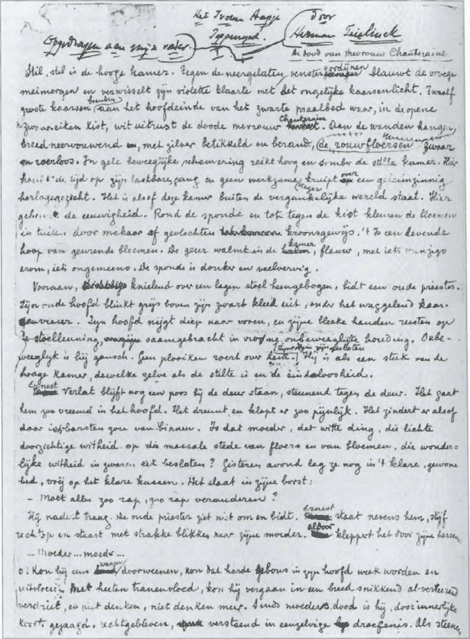 Het Ivoren Aapje door
Opgedragen aan mijn vader. Herman Teirlinck
De dood van Mevrouw Chanteraine
Stil, stil is de hooge kamer. Tegen de neergelaten venster gordijnen blauwt de vroege
meimorgen en verwisselt zijn violette klaarte met het ongelijke kaarsenlicht. Twaalf
groote kaarsen branden aan het hoofdeinde van het zwarte praalbed waar, in de opene
zwareiken kist, wit uitrust de doode mevrouw Chanteraine. Aan de wanden hangen,
breed neerwouwend en, met zilver betikkeld en berand, de rouwfloersen zwaar
en roerloos. In gele beweeglijke schemering reikt hoog en somber de stille kamer. Hier
houdt de tijd op zijn lastbaar gang en geen werkzame kruipt over een gelcinzinnig
horlogegezicht. Het is alsof deze kamer buiten de vergankelijke wereld staat. Hier
de eeuwigheid. Rond de sponde en tot tegen de kist kleuren de bloemen
in tuilen door mekaar of gevlochten kroonsgewijs. 't Is een levende
hoop van geurende bloemen. De geur walmt in de kamer, flauw, met iets wranzigs
erom, iets ongemeens. De sponde is donker en veelvervig.
Vooraan, knielend over een lagen stoel heengebogen, bidt een oude priester.
Zijn oude hoofd blinkt grijs boven zijn zwart kleed uit, onder het waggelend kaar-
sengevier. Zijn hoofd nijgt diep naar voren, en zijne bleeke handen rusten op
de stoelleuning, saamgebracht in vrome, onbeweeglijke houding. Onbe-
weeglijk is hij gansch. Geen plooiken roert over Hij is als een stuk van de
hooge kamer, dewelke zelve als de stilte is en de eindeloosheid.
Ernest Verlat blijft nog een poos bij de deur staan, steunend tegen de deur. Het gaat
hem zoo vreemd in het hoofd. Het dreunt en klopt er zoo pijnlijk. Het zindert er alsof
daar ijsbarsten zou van binnen. Is dat moeder, dat witte ding, die lichte
doorzichtige witheid op die massale stede van floers en van bloemen, die wonder-
lijke witheid in zwaren eik besloten? Gisteren avond lag ze nog in 't klare, gewone
bed, vrij op het klare kussen. Het slaat in zijne borst:
– Moet alles zoo rap, zoo rap veranderen?
Hij nadert traag. De oude priester ziet niet om en bidt. Ernest staat nevens hem, stijf
rechtop en staart met strakke blikken naar zijne moeder. kleppert het door zijne hersens
– Moeder... moeder...
O! Kon hij een doorweenen, kon dat harde gebons in zijn hoofd week worden en
uitvloeien met heelen tranenvloed, kon hij vergaan in een breed snikkend al-verteerend
verdriet, en niet denken, niet denken meer. Sinds moeders dood is hij, door innerlijke
koorts gejaagd, rechtgebleven, versteend in eenzelvige droefenis. Als steen